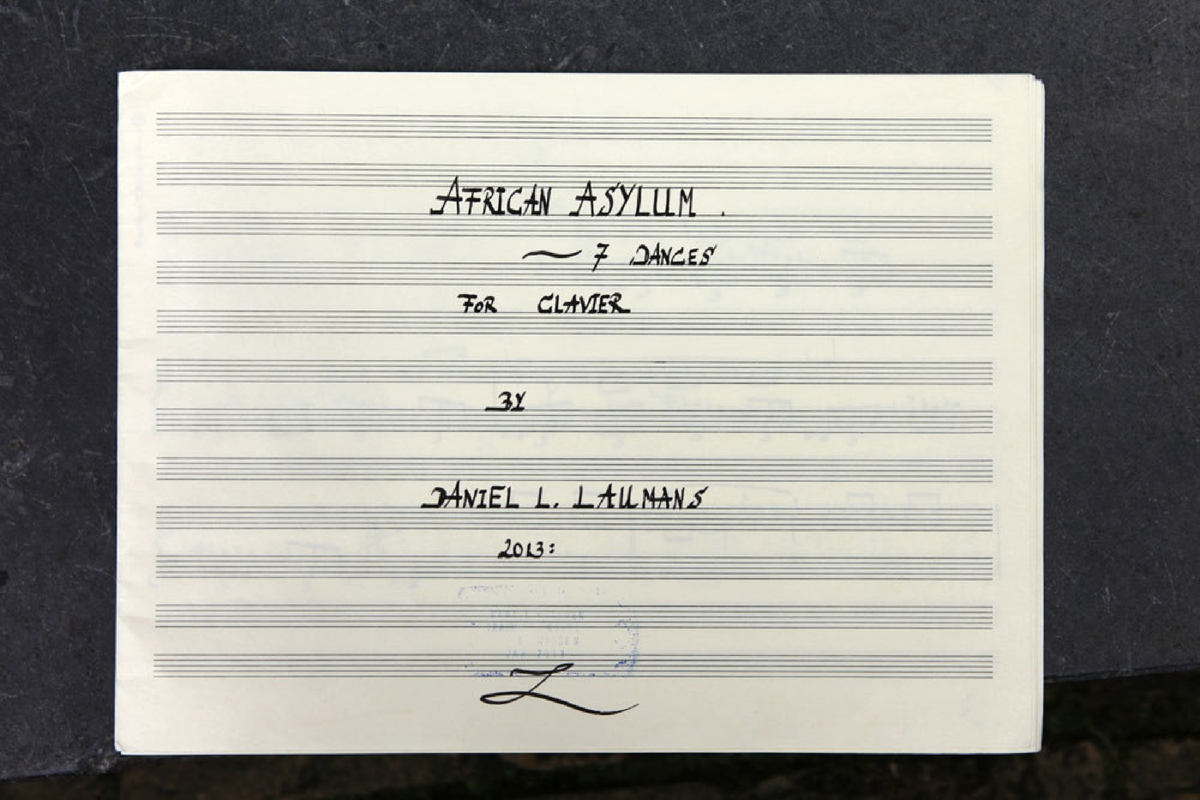 AFRICAN ASYLUM .
~ 7 DANCES
FOR CLAVIER
BY
DANIEL L. LAUMANS
2013: